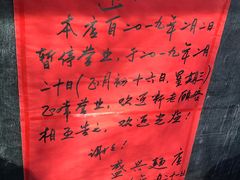 本店自二〇一九年二月二日
暂停营业，于二〇一九年二月
二十日（正月初十六日，星期三）
正常营业，欢迎新老顾客
相互告之，欢迎光临！
谢谢！
盛兴面店